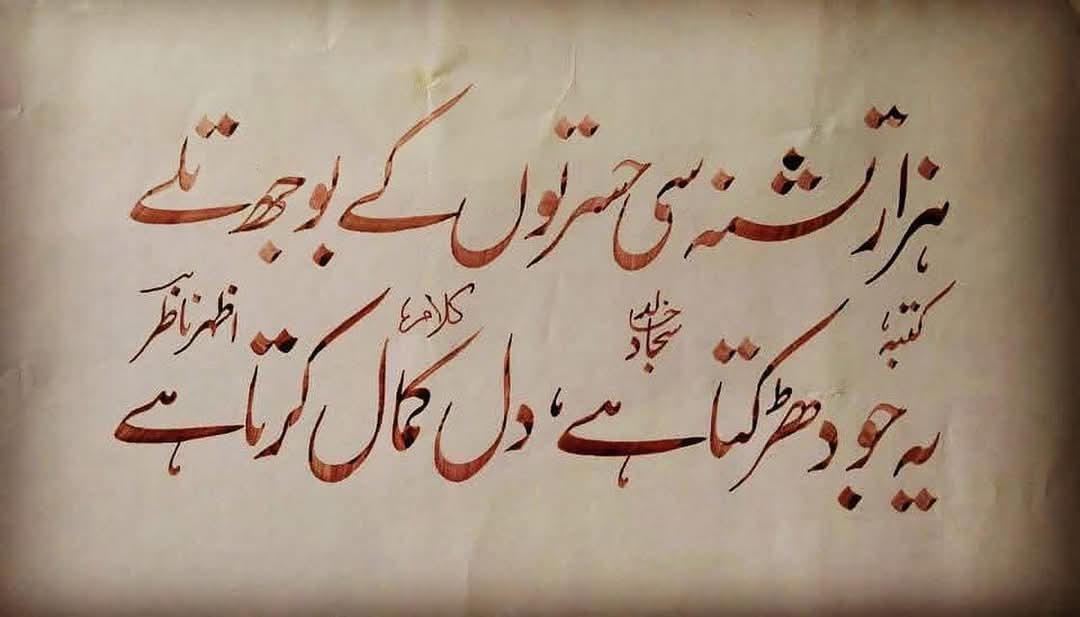 ہزار تشنہ سی حسرتوں کے بوجھ تلے
کتبہ، سجاد خالد
کلام، اظہر ناظر
یہ جو دھڑکتا ہے، دل کمال کرتا ہے